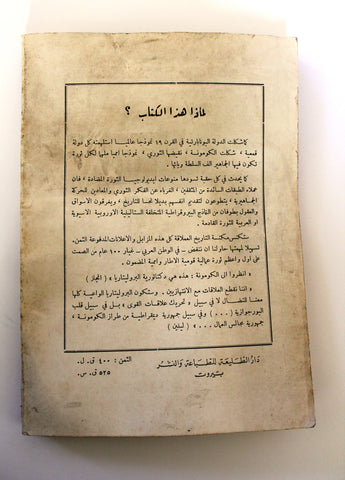 لماذا هذا الكتاب ؟
كما شكلت الدولة البونابارتية في القرن ١٩ نموذجا عالميا استلهمته كل دولة
قمعية ، شكلت الكومونة ، نقيضها الثوري ، نموذجا امميا ملهما لكل ثورة
تكون فيها الجماهير الف السلطة وياءها .
« يحدث في كل حقبة تسودها منوعات ايديولوجيا الثورة المضادة ، فان
عملاء الطبقات السائدة من المثقفين ، الغرباء عن الفكر الثوري والمعادين للحركة
الجماهيرية ، يتطوعون لتقديم انفسهم بديلا نخبويا للتاريخ ، ويغرقون الاسواق
والعقول بطوفان من النماذج البيروقراطية المتخلفة الستالينية الاوروبية الاسيوية
او العربية الثورة القادمة .
ستكنس مكنسة التاريخ العملاقة كل هذه المزابل والاعلانات المدفوعة الثمن.
تسهيلا لمهمتها حاولنا ان ننفض - في الوطن العربي - غبار ١٠٠ عام من الصمت
على اول واعظم ثورة عمالية قومية الاطار واممية المضمون .
« انظروا الى الكومونة : هذه هي دكتاتورية البروليتاريا » ( انجلز )
« اننا نقطع العلاقات مع الانتهازيين . وستكون البروليتاريا الواعية كلها
معنا للنضال لا في سبيل « تحريك علاقات القوى » بل في سبيل قلب
البورجوازية ( ... ) وفي سبيل جمهورية ديمقراطية من طراز الكومونة ،
جمهورية مجالس العمال ... » ( لينين )
دار الطليعة للطباعة والنشر
بيروت
الثمن : ٤٠٠ ق. ل.
٥٢٥ ق. س.